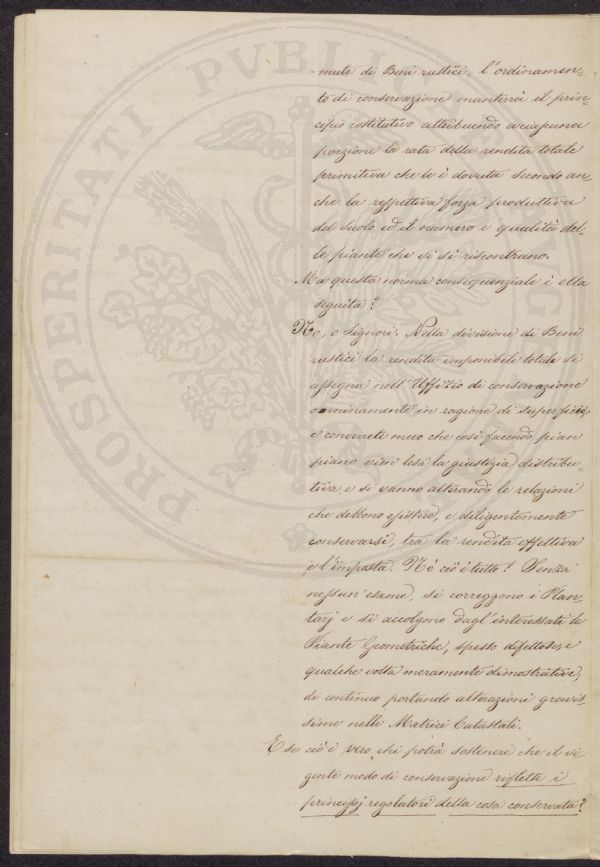 mute di Beni rustici, l'ordinamen-
to di conservazione manterrà il prin-
cipio costitutivo attribuendo a ciascuna
porzione la rata della rendita totale
primitiva che le è dovuta secondo an-
che la respettiva forza produttiva
del suolo ed il numero e qualità del-
le piante che vi si riscontrano.
Ma questa norma consequenziale è ella
seguita?
No, o Signori. Nella divisione di Beni
rustici la rendita imponibile totale si
assegna nell'Uffizio di conservazione
onninamente in ragione di superficie,
e converrete meco che così facendo pian
piano vien lesa la giustizia distribu-
tiva, e si vanno alterando le relazioni
che debbono esistere, e diligentemente
conservarsi, tra la rendita effettiva
e l'imposta. Nè ciò è tutto! Senza
nessun'esame, si correggono i Plan-
tarj e si accolgono dagl'interessati le
Piante Geometriche, spesso difettose, e
qualche volta meramente dimostrative,
di continuo portando alterazioni gravis-
sime nelle Matrici Catastali.
E se ciò è vero, chi potrà sostenere che il vi-
gente modo di conservazione rifletta i
principj regolatori della cosa conservata?
PROSPERITATI PVBLI G